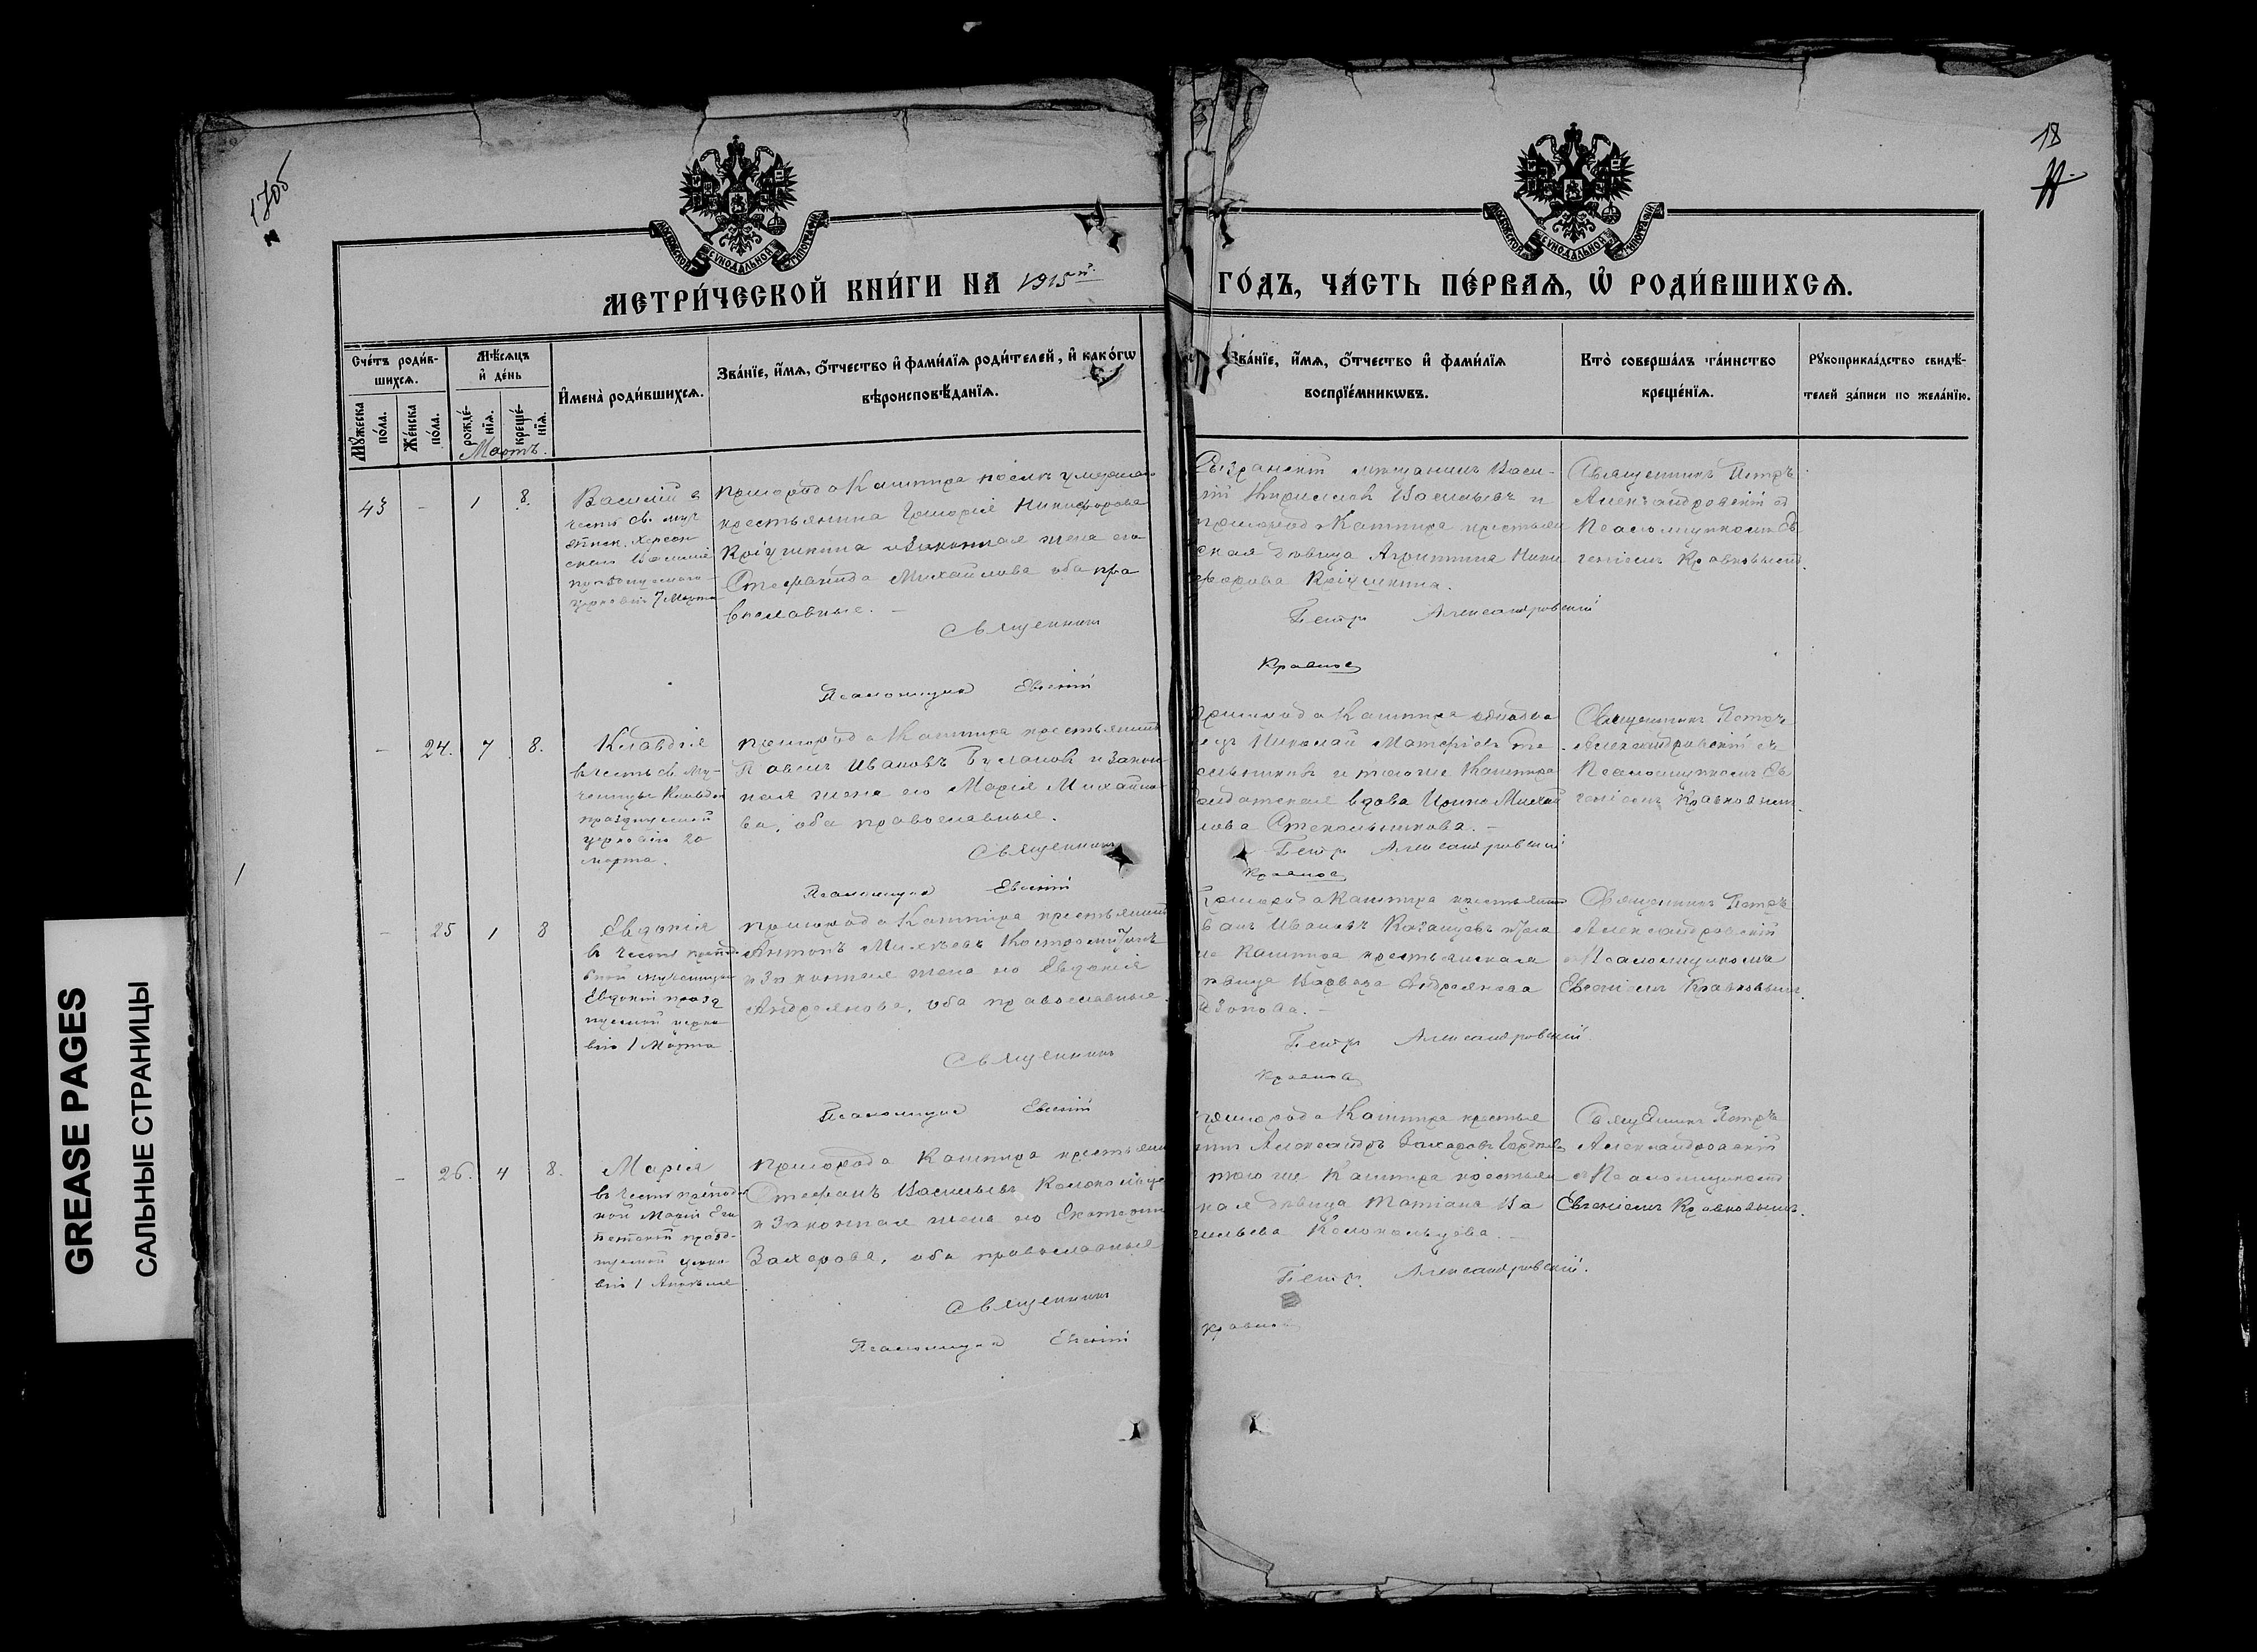 1705
18
МОСКОВСКОЙ СѴНОДАЛЬНОЙ ТИПОГРАФІИ
МОСКОВСКОЙ СѴНОДАЛЬНОЙ ТИПОГРАФІИ
МЕТРИ́ЧЕСКОЙ КНИ́ГИ НА 1915й
ГО́ДЪ, ЧА́СТЬ ПЕ́РВАѦ, Ѽ РОДИ́ВШИХСѦ.
Сче́тъ роди́в-
шихсѧ.
Мꙋ́жеска
по́ла.
Же́нска
по́ла.
Мѣ́сѧцъ
и҆ де́нь
рожде́-
нїѧ.
креще́-
нїѧ.
Мартъ.
И҆мена̀ роди́вшихсѧ.
Зва́нїе, и҆́мѧ, ѻ҆́тчество и҆ фами́лїѧ роди́телей, и҆ како́гѡ
вѣроисповѣ́данїѧ.
Зва́нїе, и҆́мѧ, ѻ҆́тчество и҆ фами́лїѧ
воспрїе́мникѡвъ.
Кто̀ соверша́лъ та́инство
креще́нїѧ.
Рꙋкоприкла́дство свидѣ́-
телей за́писи по жела́нїю.
43 - 1 8.
Василій в
честь св. муч
еписк. Херсон
скаго Василія
празднуемаго
церковію 7 Марта
пригорода Кашпира послѣ умершаго
крестьянина Григорія Никифорова
Кріушкина и законная жена его
Стефанида Михайлова оба пра
вославные. -
Священникъ
Псаломщикъ Евгеній
Сызранскій мѣщанинъ Васи-
лій Кирилловъ Васильевъ и
пригорода Кашпира крестьян
ская дѣвица Агриппина Ники
форова Кріушкина.
Петръ Александровскій
Кравковъ
Священникъ Петръ
Александровскій съ
Псаломщикомъ Ев
геніемъ Кравковымъ.
- 24. 7 8.
Клавдія
въ честь св. Му-
ченицы Клавдіи
празднуемой
церковію 20
марта.
пригорода Кашпира крестьянинъ
Павелъ Ивановъ Булановъ и закон
ная жена его Марія Михайло
ва, оба православные.
Священникъ
Псаломщикъ Евгеній
пригорода Кашпира
Николай Матфіевъ
и того же Кашпира
солдатская вдова Ирина Михай
лова Стекольникова. -
Петръ Александровскій
Кравковъ
Священникъ Петръ
Александровскій съ
Псаломщикомъ Ев
геніемъ Кравковымъ.
- 25 1 8
Евдокія
въ честь препод
бной мученицы
Евдокіи празд
нуемой церко
вію 1 Марта
пригорода Кашпира крестьянинъ
Антонъ Михѣевъ
и законная жена его Евдокія
Андреянова, оба православные.
Священникъ
Псаломщикъ Евгеній
Пригорода Кашпира крестьянинъ
Ивановъ Казанцевъ и того
же Кашпира крестьянская
дѣвица Варвара Андреянова
Петръ Александровскій
Кравковъ
Священникъ Петръ
Александровскій
съ Псаломщикомъ
Евгеніемъ Кравковымъ.
- 26. 4 8.
Марія
въ честь преподоб
ной Маріи Еги
петской празд-
нуемой церко-
вію 1 Апрѣля
пригорода Кашпира крестьянинъ
Стефанъ Васильевъ Колокольце
и законная жена его Екатерина
Захарова, оба православные
Священникъ
Псаломщикъ Евгеній
пригорода Кашпира крестья
нинъ Александръ Захаровъ
и того же Кашпира крестьян
ская дѣвица Татіана Ва
сильева Колокольцева. -
Петръ Александровскій.
Кравковъ
Священникъ Петръ
Александровскій
съ Псаломщикомъ
Евгеніемъ Кравковымъ.
GREASE PAGES
САЛЬНЫЕ СТРАНИЦЫ